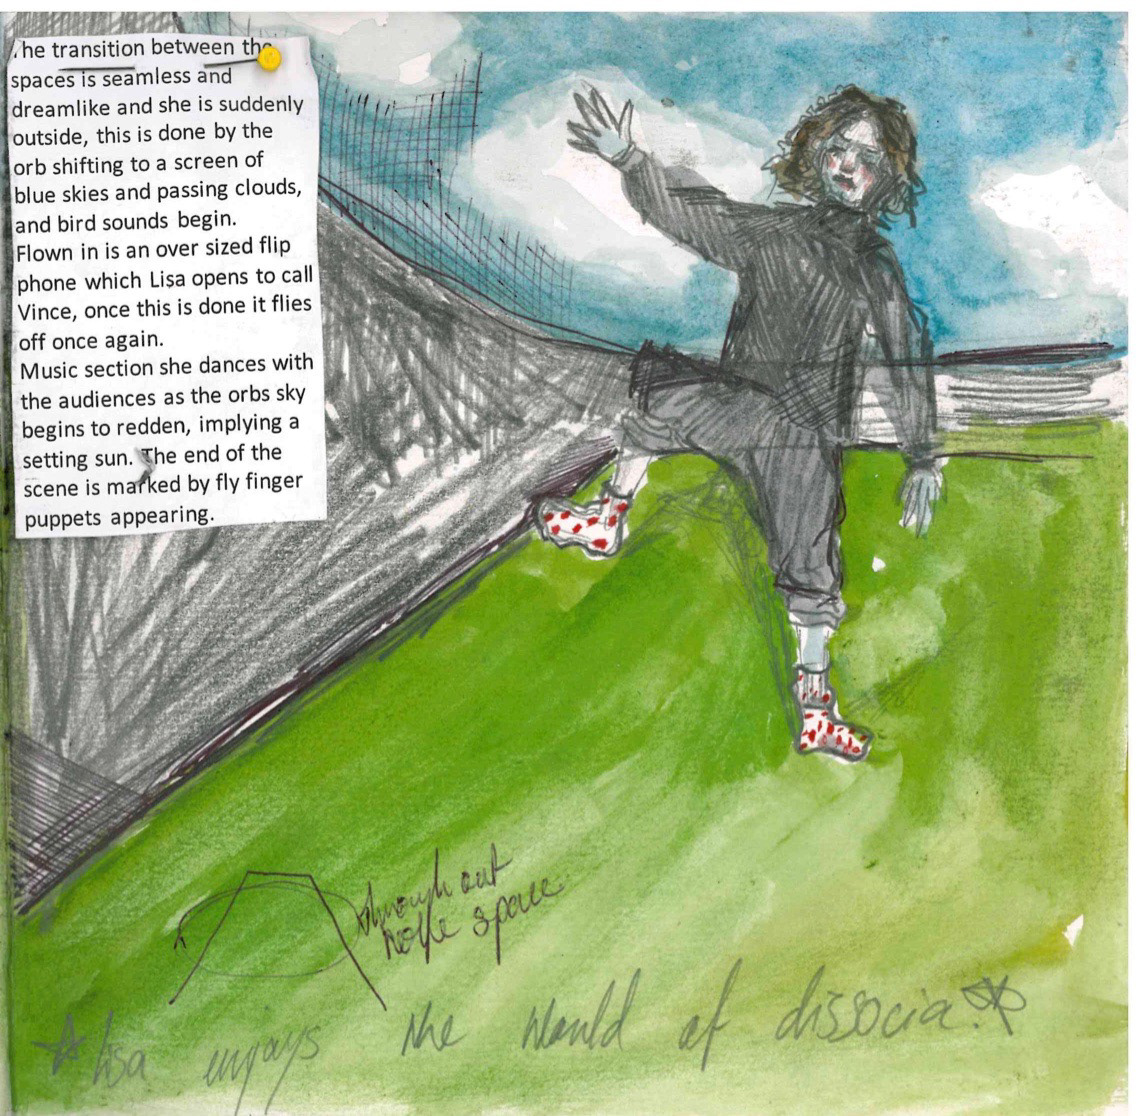 The transition between the
spaces is seamless and
dreamlike and she is suddenly
outside, this is done by the
orb shifting to a screen of
blue skies and passing clouds,
and bird sounds begin.
Flown in is an over sized flip
phone which Lisa opens to call
Vince, once this is done it flies
off once again.
Music section she dances with
the audiences as the orbs sky
begins to redden, implying a
setting sun. The end of the
scene is marked by fly finger
puppets appearing.
through out
space
lisa enjoys the World of dissocia.